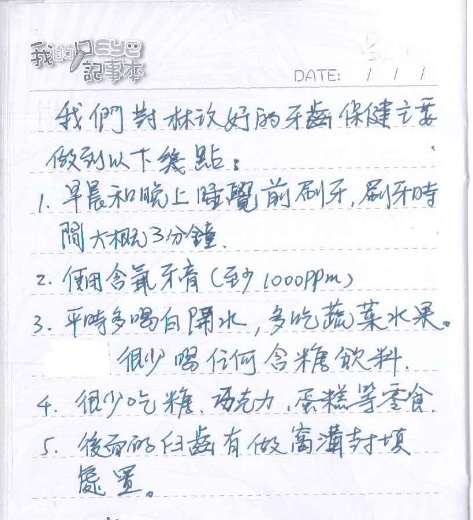 我的口巴記事本
DATE: / / /
我們對林玟妤的牙齒保健主要
做到以下幾點：
1. 早晨和晚上睡覺前刷牙，刷牙時
間大概3分鐘.
2. 使用含氟牙膏(至少1000ppm)
3. 平時多喝白開水，多吃蔬菜水果。
很少喝任何含糖飲料.
4. 很少吃糖、巧克力、蛋糕等零食.
5. 後面的臼齒有做窩溝封填
處置。